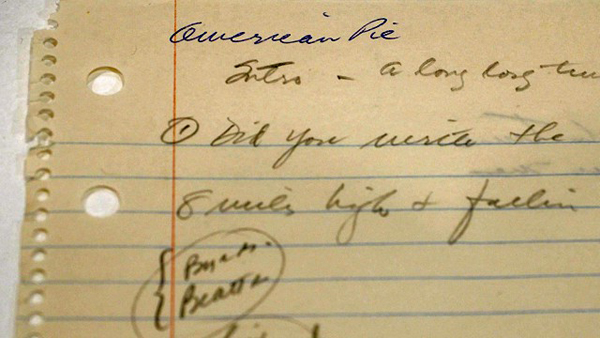 American Pie
Intro - a long long
① Did you write the
8 miles high + fallin
Byrds
Beatles